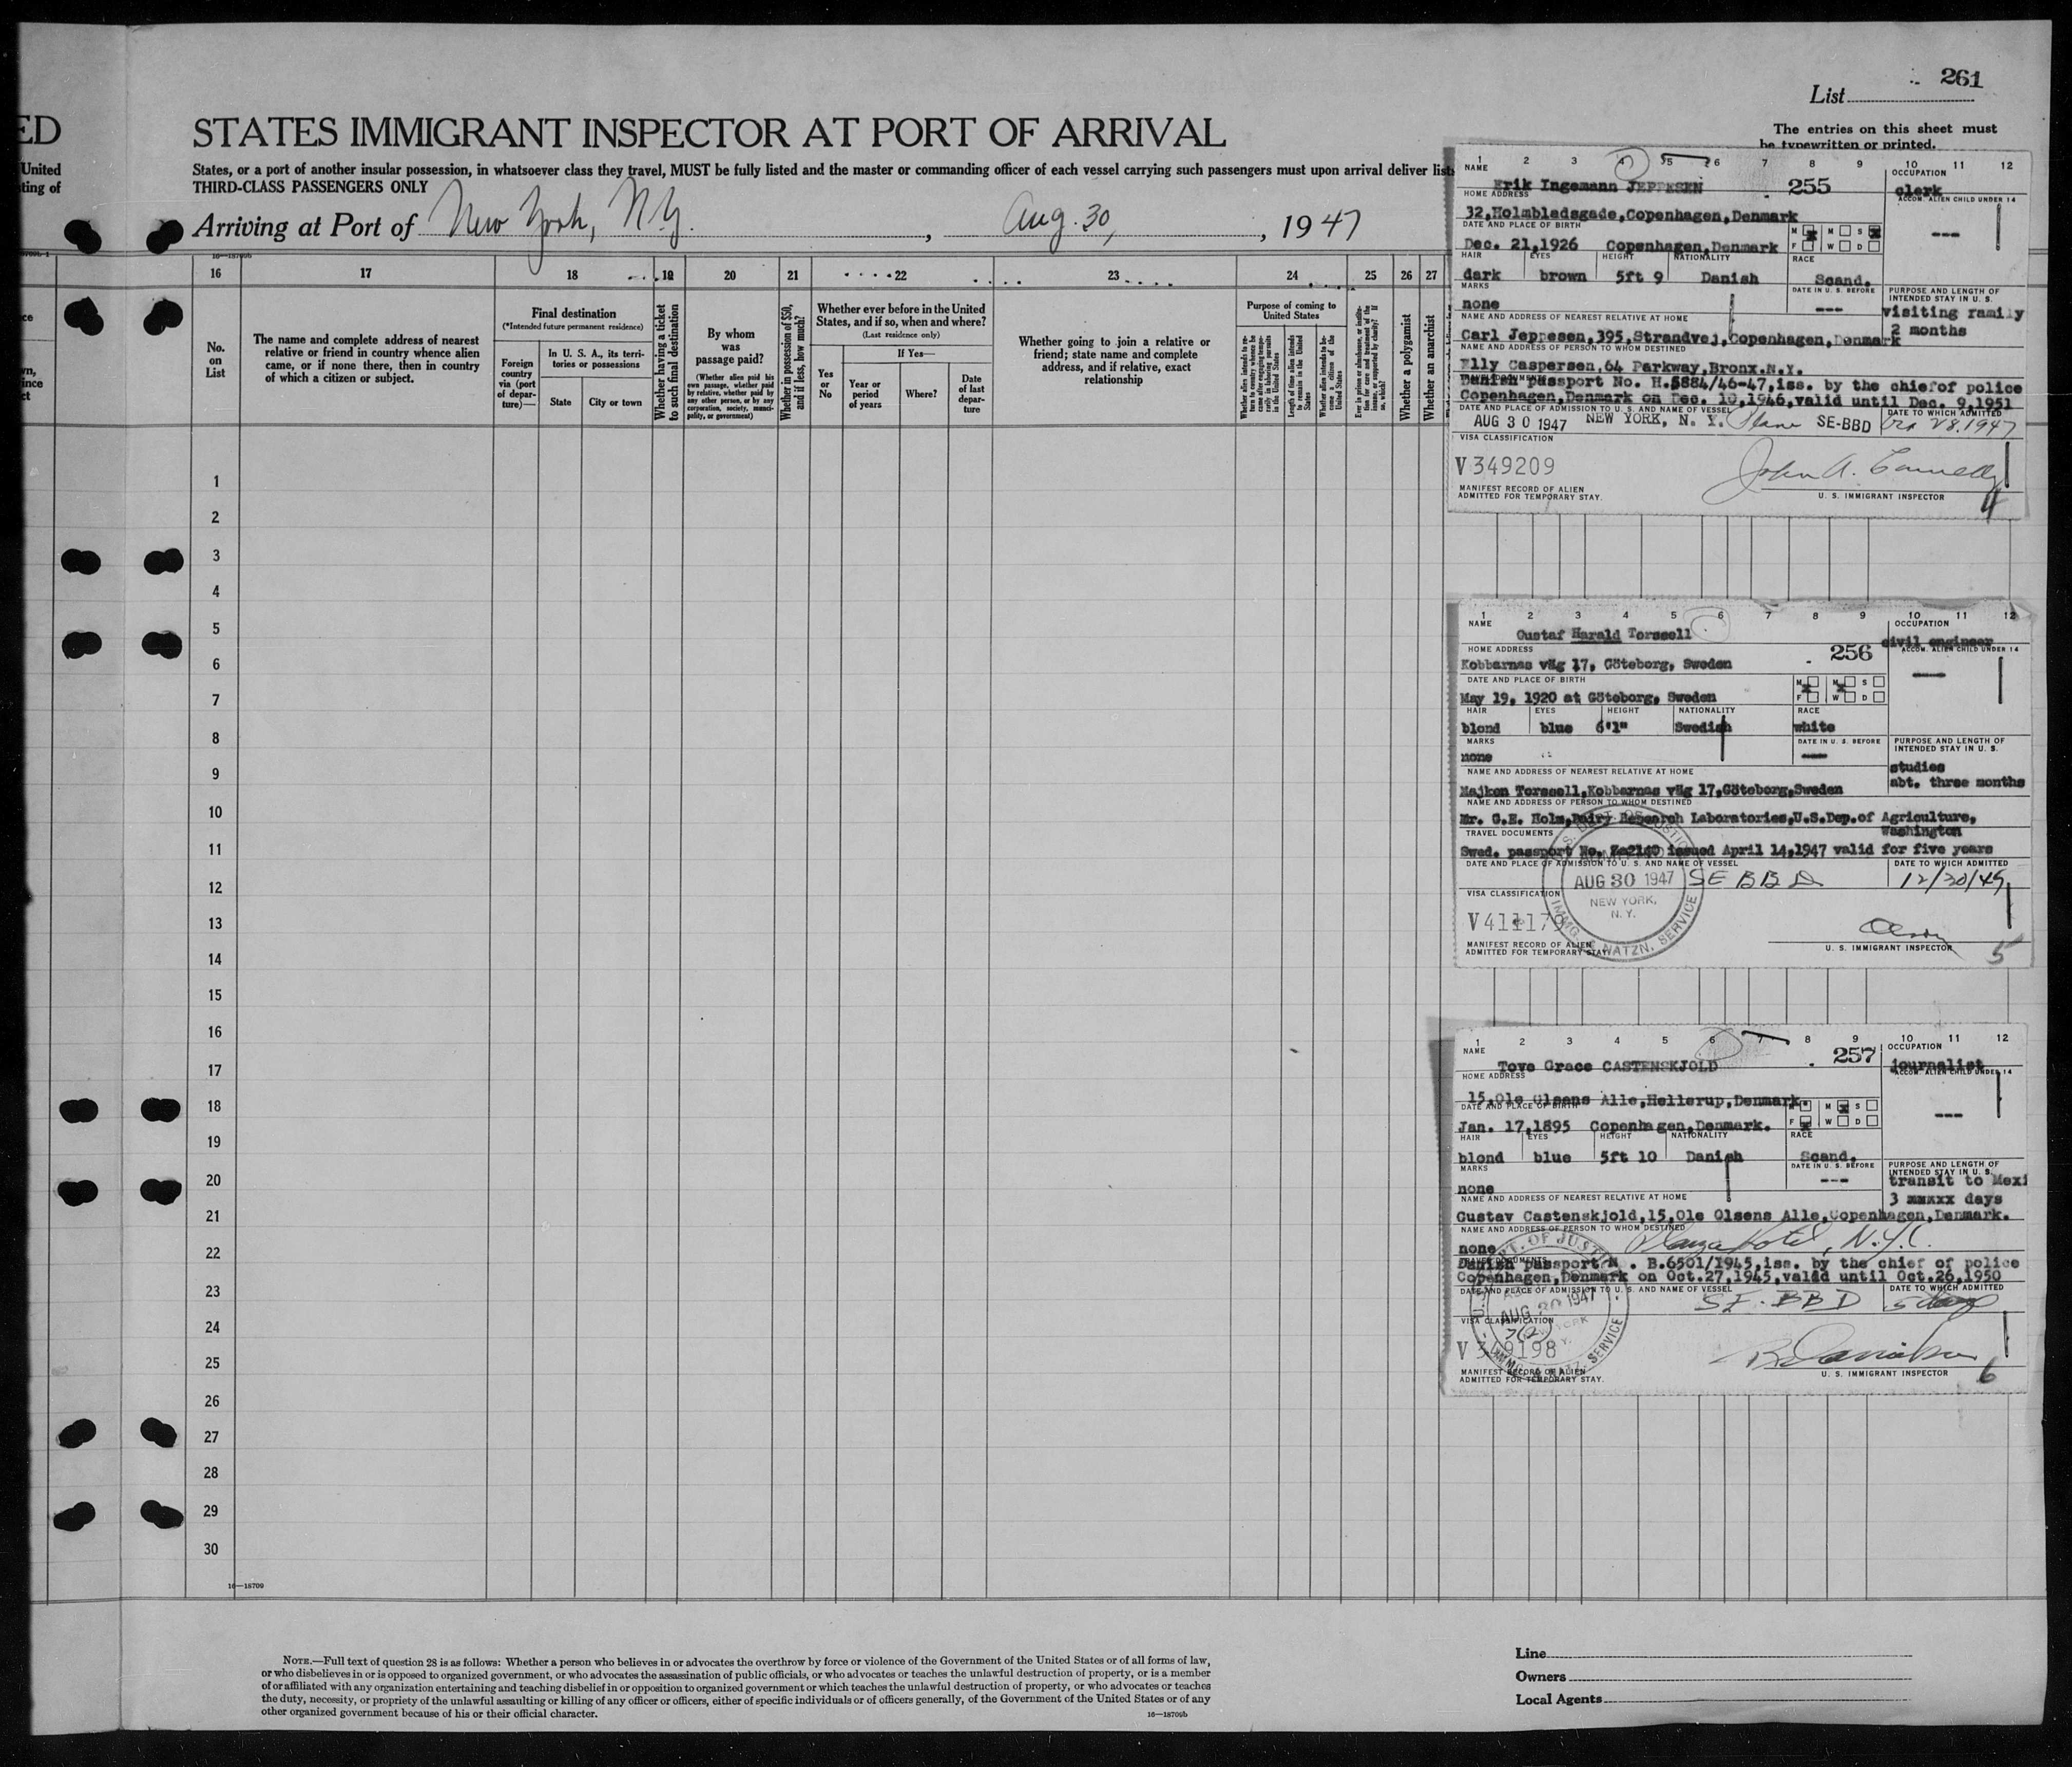 261
List
The entries on this sheet must
be typewritten or printed.
ED
STATES IMMIGRANT INSPECTOR AT PORT OF ARRIVAL
United
ting of
States, or a port of another insular possession, in whatsoever class they travel, MUST be fully listed and the master or commanding officer of each vessel carrying such passengers must upon arrival deliver lists
THIRD-CLASS PASSENGERS ONLY
Arriving at Port of New York, N.Y. , Aug. 30, , 1947
16 17 18 19 20 21 22 23 24 25 26 27
No. on List
The name and complete address of nearest
relative or friend in country whence alien
came, or if none there, then in country
of which a citizen or subject.
Final destination
(*Intended future permanent residence)
Foreign country via (port of departure)—
In U. S. A., its territories or possessions
State
City or town
Whether having a ticket to such final destination
By whom was passage paid?
(Whether alien paid his own passage, whether paid by relative, whether paid by any other person, or by any corporation, society, municipality, or government)
Whether in possession of $50, and if less, how much?
Whether ever before in the United States, and if so, when and where?
(Last residence only)
Yes or No
If Yes—
Year or period of years
Where?
Date of last departure
Whether going to join a relative or
friend; state name and complete
address, and if relative, exact
relationship
Purpose of coming to United States
Length of time alien intends to remain in the United States
Whether a polygamist
Whether an anarchist
1
2
3
4
5
6
7
8
9
10
11
12
13
14
15
16
17
18
19
20
21
22
23
24
25
26
27
28
29
30
16—18709
1 2 3 4 5 6 7 8 9 10 11 12
NAME
Erik Ingemann JEPPESEN
255
OCCUPATION
clerk
HOME ADDRESS
ACCOM. ALIEN CHILD UNDER 14
32,Holmbladsgade,Copenhagen,Denmark
DATE AND PLACE OF BIRTH
M M S
F W D
---
Dec. 21,1926 Copenhagen,Denmark
HAIR EYES HEIGHT NATIONALITY RACE
dark brown 5ft 9 Danish Scand.
MARKS
DATE IN U. S. BEFORE
PURPOSE AND LENGTH OF INTENDED STAY IN U. S.
none
---
visiting family
2 months
NAME AND ADDRESS OF NEAREST RELATIVE AT HOME
Carl Jeppesen,395,Strandvej,Copenhagen,Denmark
NAME AND ADDRESS OF PERSON TO WHOM DESTINED
Elly Caspersen,64 Parkway,Bronx.N.Y.
Danish passport No. H.5884/46-47,iss. by the chiefof police
Copenhagen,Denmark on Dec. 10,1946,valid until Dec. 9,1951
DATE AND PLACE OF ADMISSION TO U. S. AND NAME OF VESSEL
DATE TO WHICH ADMITTED
AUG 30 1947 NEW YORK, N. Y. Plane SE-BBD
28.1947
VISA CLASSIFICATION
V349209
John A. Connelly
MANIFEST RECORD OF ALIEN
ADMITTED FOR TEMPORARY STAY.
U. S. IMMIGRANT INSPECTOR
4
1 2 3 4 5 6 7 8 9 10 11 12
NAME
OCCUPATION
Gustaf Harald Torssell
civil engineer
HOME ADDRESS
256
ACCOM. ALIEN CHILD UNDER 14
Kobbarnas väg 17, Göteborg, Sweden
DATE AND PLACE OF BIRTH
M M S
F W D
May 19, 1920 at Göteborg, Sweden
HAIR EYES HEIGHT NATIONALITY RACE
blond blue 6'1" Swedish white
MARKS
DATE IN U. S. BEFORE
PURPOSE AND LENGTH OF INTENDED STAY IN U. S.
none
studies
abt. three months
NAME AND ADDRESS OF NEAREST RELATIVE AT HOME
Majken Torssell,Kobbarnas väg 17,Göteborg,Sweden
NAME AND ADDRESS OF PERSON TO WHOM DESTINED
Mr. G.E. Holm,Dairy Research Laboratories,U.S.Dep.of Agriculture,
TRAVEL DOCUMENTS
Washington
Swed. passport No. Ze2140 issued April 14,1947 valid for five years
DATE AND PLACE OF ADMISSION TO U. S. AND NAME OF VESSEL
DATE TO WHICH ADMITTED
AUG 30 1947 SE BBD
12/30/49
NEW YORK, N. Y.
IMMG. & NATZN. SERVICE
VISA CLASSIFICATION
V411179
MANIFEST RECORD OF ALIEN
ADMITTED FOR TEMPORARY STAY.
U. S. IMMIGRANT INSPECTOR
5
1 2 3 4 5 6 7 8 9 10 11 12
NAME
257
OCCUPATION
Tove Grace CASTENSKJOLD
journalist
HOME ADDRESS
ACCOM. ALIEN CHILD UNDER 14
15,Ole Olsens Alle,Hellerup,Denmark.
DATE AND PLACE OF BIRTH
M M S
F W D
---
Jan. 17,1895 Copenhagen,Denmark.
HAIR EYES HEIGHT NATIONALITY RACE
blond blue 5ft 10 Danish Scand.
MARKS
DATE IN U. S. BEFORE
PURPOSE AND LENGTH OF INTENDED STAY IN U. S.
none
---
transit to Mexi
3 days
NAME AND ADDRESS OF NEAREST RELATIVE AT HOME
Gustav Castenskjold,15,Ole Olsens Alle,Copenhagen,Denmark.
NAME AND ADDRESS OF PERSON TO WHOM DESTINED
none Plaza Hotel, N.Y.C.
Danish passport N . B.6501/1945,iss. by the chief of police
Copenhagen,Denmark on Oct.27,1945,valid until Oct.26,1950
DATE AND PLACE OF ADMISSION TO U. S. AND NAME OF VESSEL
DATE TO WHICH ADMITTED
AUG 30 1947 SE-BBD
VISA CLASSIFICATION
MANIFEST RECORD OF ALIEN
ADMITTED FOR TEMPORARY STAY.
U. S. IMMIGRANT INSPECTOR
6
NOTE.—Full text of question 28 is as follows: Whether a person who believes in or advocates the overthrow by force or violence of the Government of the United States or of all forms of law,
or who disbelieves in or is opposed to organized government, or who advocates the assassination of public officials, or who advocates or teaches the unlawful destruction of property, or is a member
of or affiliated with any organization entertaining and teaching disbelief in or opposition to organized government or which teaches the unlawful destruction of property, or who advocates or teaches
the duty, necessity, or propriety of the unlawful assaulting or killing of any officer or officers, either of specific individuals or of officers generally, of the Government of the United States or of any
other organized government because of his or their official character.
16—18709b
Line
Owners
Local Agents